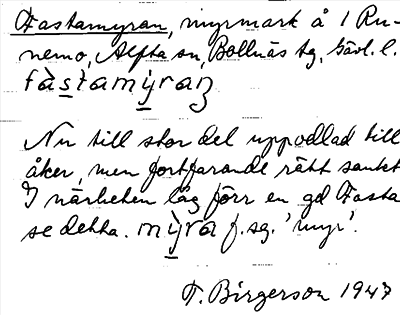 Fastamyran, myrmark å 1 Ru-
nemo, Alfta sn, Bollnäs tg, Gävl. l.
fàstamy̌raꞑ
Nu till stor del uppodlad till
åker, men fortfarande rätt sankt
I närheten låg förr en gd Fasta
se detta. my̌ra f. sg. 'myr'.
F. Birgerson 1947